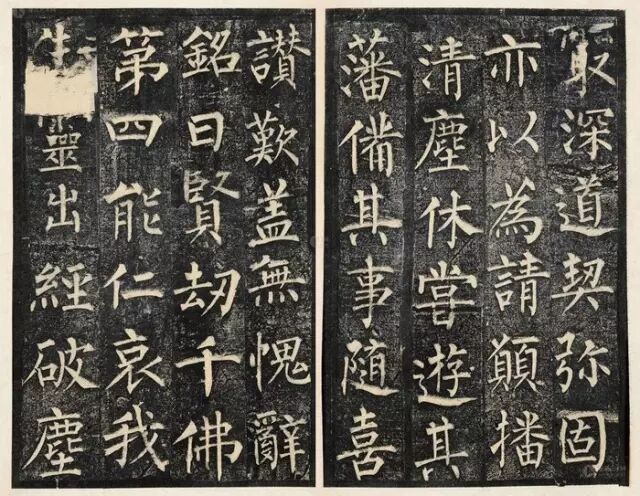 最深道契弥固
亦以為請願播
清塵休甞遊其
藩備其事随喜
讃歎盖無愧辭
銘曰賢劫千佛
第四能仁哀我
生靈出經破塵